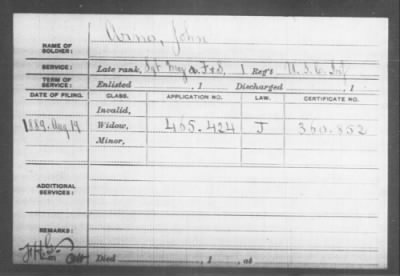 NAME OF SOLDIER: John
SERVICE: Late rank, Sgt Maj & F & S, 1 Reg't U.S.C. Inf
TERM OF SERVICE: Enlisted , 1 Discharged , 1
DATE OF FILING. CLASS. APPLICATION NO. LAW. CERTIFICATE NO.
Invalid,
1889. Aug 19 Widow, 405.424 J 360.852
Minor,
ADDITIONAL SERVICES:
REMARKS:
Died , 1 , at